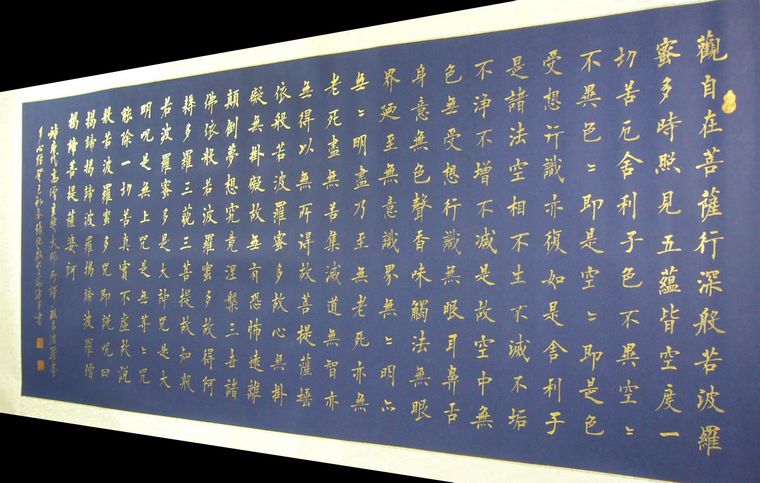 觀自在菩薩行深般若波羅
蜜多時照見五蘊皆空度一
切苦厄舍利子色不異空〻
不異色〻即是空〻即是色
受想行識亦復如是舍利子
是諸法空相不生不滅不垢
不淨不增不減是故空中無
色無受想行識無眼耳鼻舌
身意無色聲香味觸法無眼
界廼至無意識界無〻明亦
無〻明盡乃至無老死亦無
老死盡無苦集滅道無智亦
無得以無所得故菩提薩埵
依般若波羅蜜多故心無掛
礙無掛礙故無有恐怖遠離
顛倒夢想究竟涅槃三世諸
佛依般若波羅蜜多故得阿
耨多羅三藐三菩提故知般
若波羅蜜多是大神咒是大
明咒是無上咒是無等〻咒
能除一切苦真實不虛故說
般若波羅蜜多咒即說咒曰
揭諦揭諦波羅揭諦波羅僧
揭諦菩提薩婆訶
唐代高僧玄奘大師所譯般若波羅蜜
多心經癸巳初春書